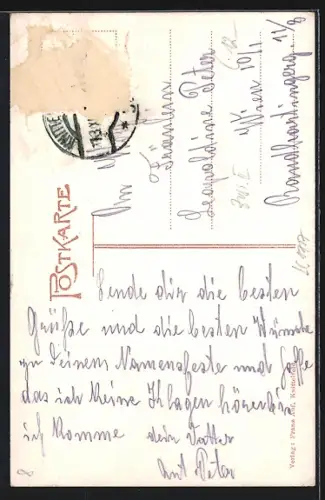 POSTKARTE
An
Fräulein
Leopoldine Peter
Wien 10/1
11/8
Sende dir die besten
Grüße und die besten Wünsche
zu Deinem Namensfeste und hoffe
das ich keine Klagen hören bis
ich komme dein Vatter
Ant Peter
Verlag: Franz
8